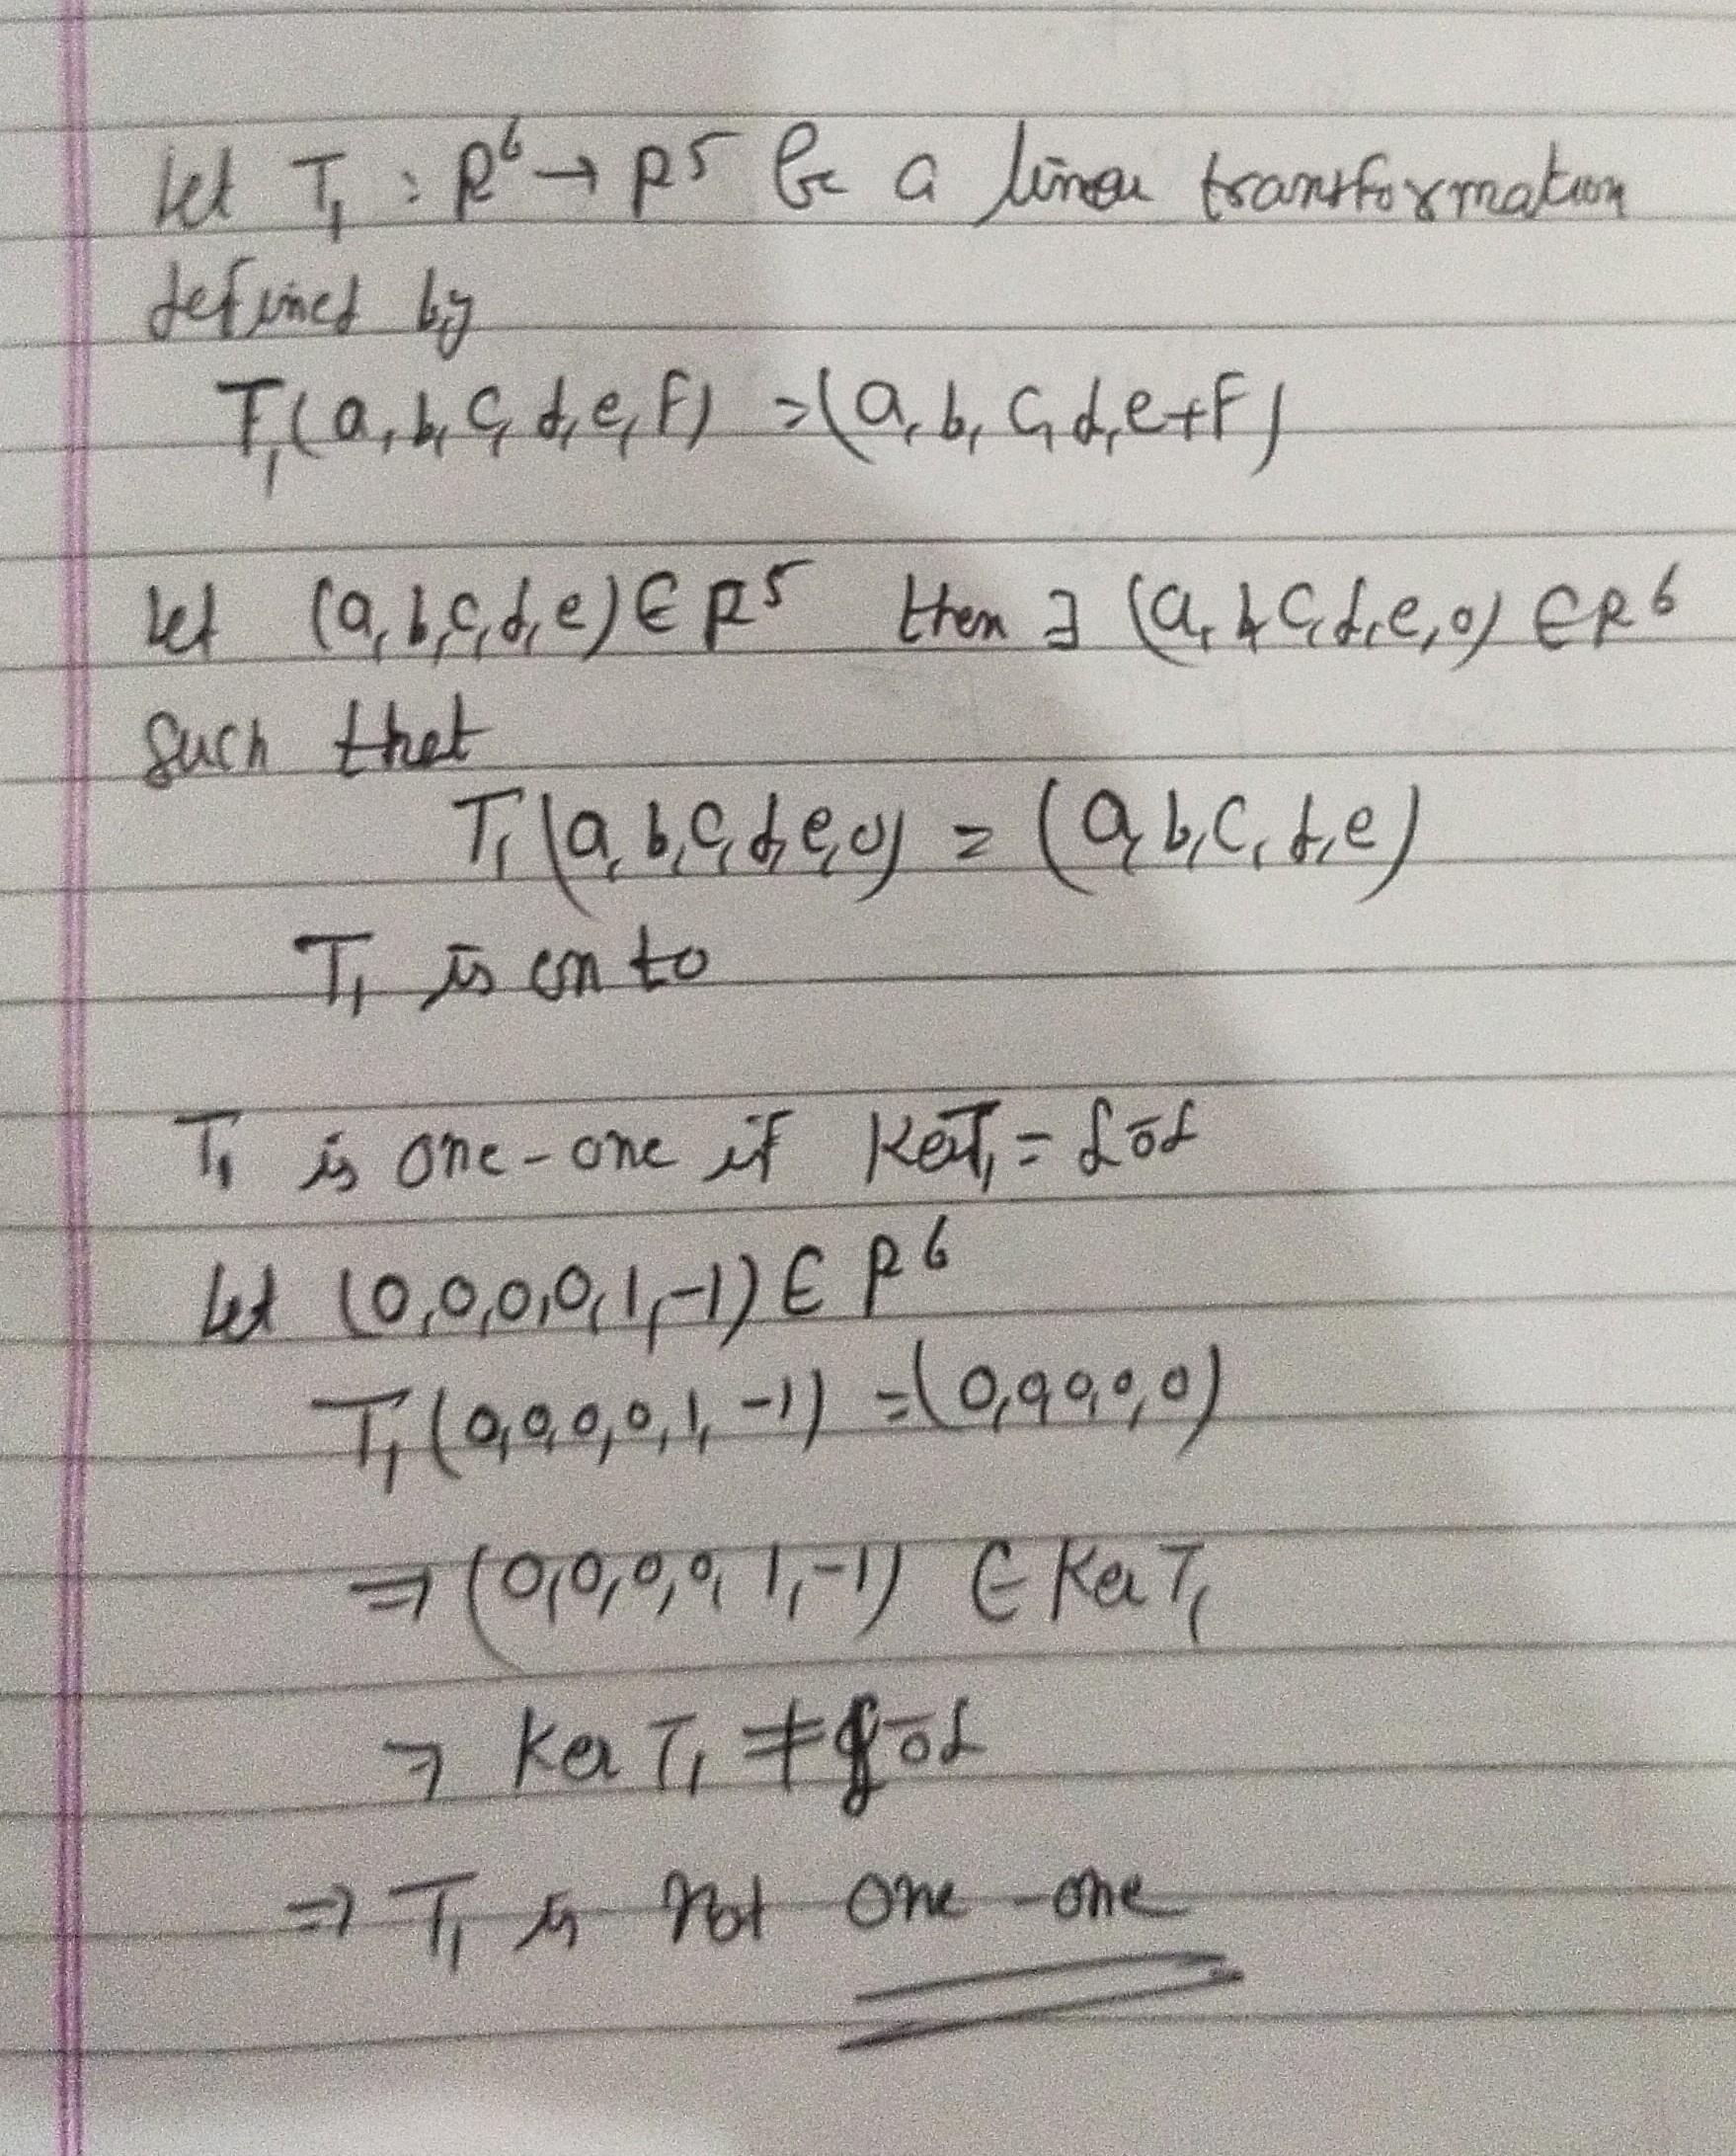 Let T₁ : R⁶ → R⁵ be a linear transformation
defined by
T₁(a, b, c, d, e, F) = (a, b, c, d, e+F)
Let (a, b, c, d, e) ∈ R⁵ then ∃ (a, b, c, d, e, 0) ∈ R⁶
Such that
T₁(a, b, c, d, e, 0) = (a, b, c, d, e)
T₁ is onto
T₁ is one-one if KerT₁ = {0̄}
Let (0, 0, 0, 0, 1, -1) ∈ R⁶
T₁(0, 0, 0, 0, 1, -1) = (0, 0, 0, 0, 0)
⇒ (0, 0, 0, 0, 1, -1) ∈ Ker T₁
⇒ Ker T₁ ≠ {0̄}
⇒ T₁ is not one-one